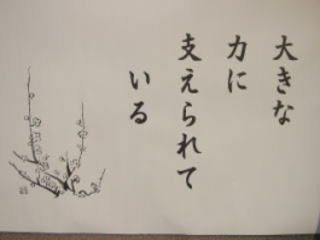 大きな
力に
支えられて
いる